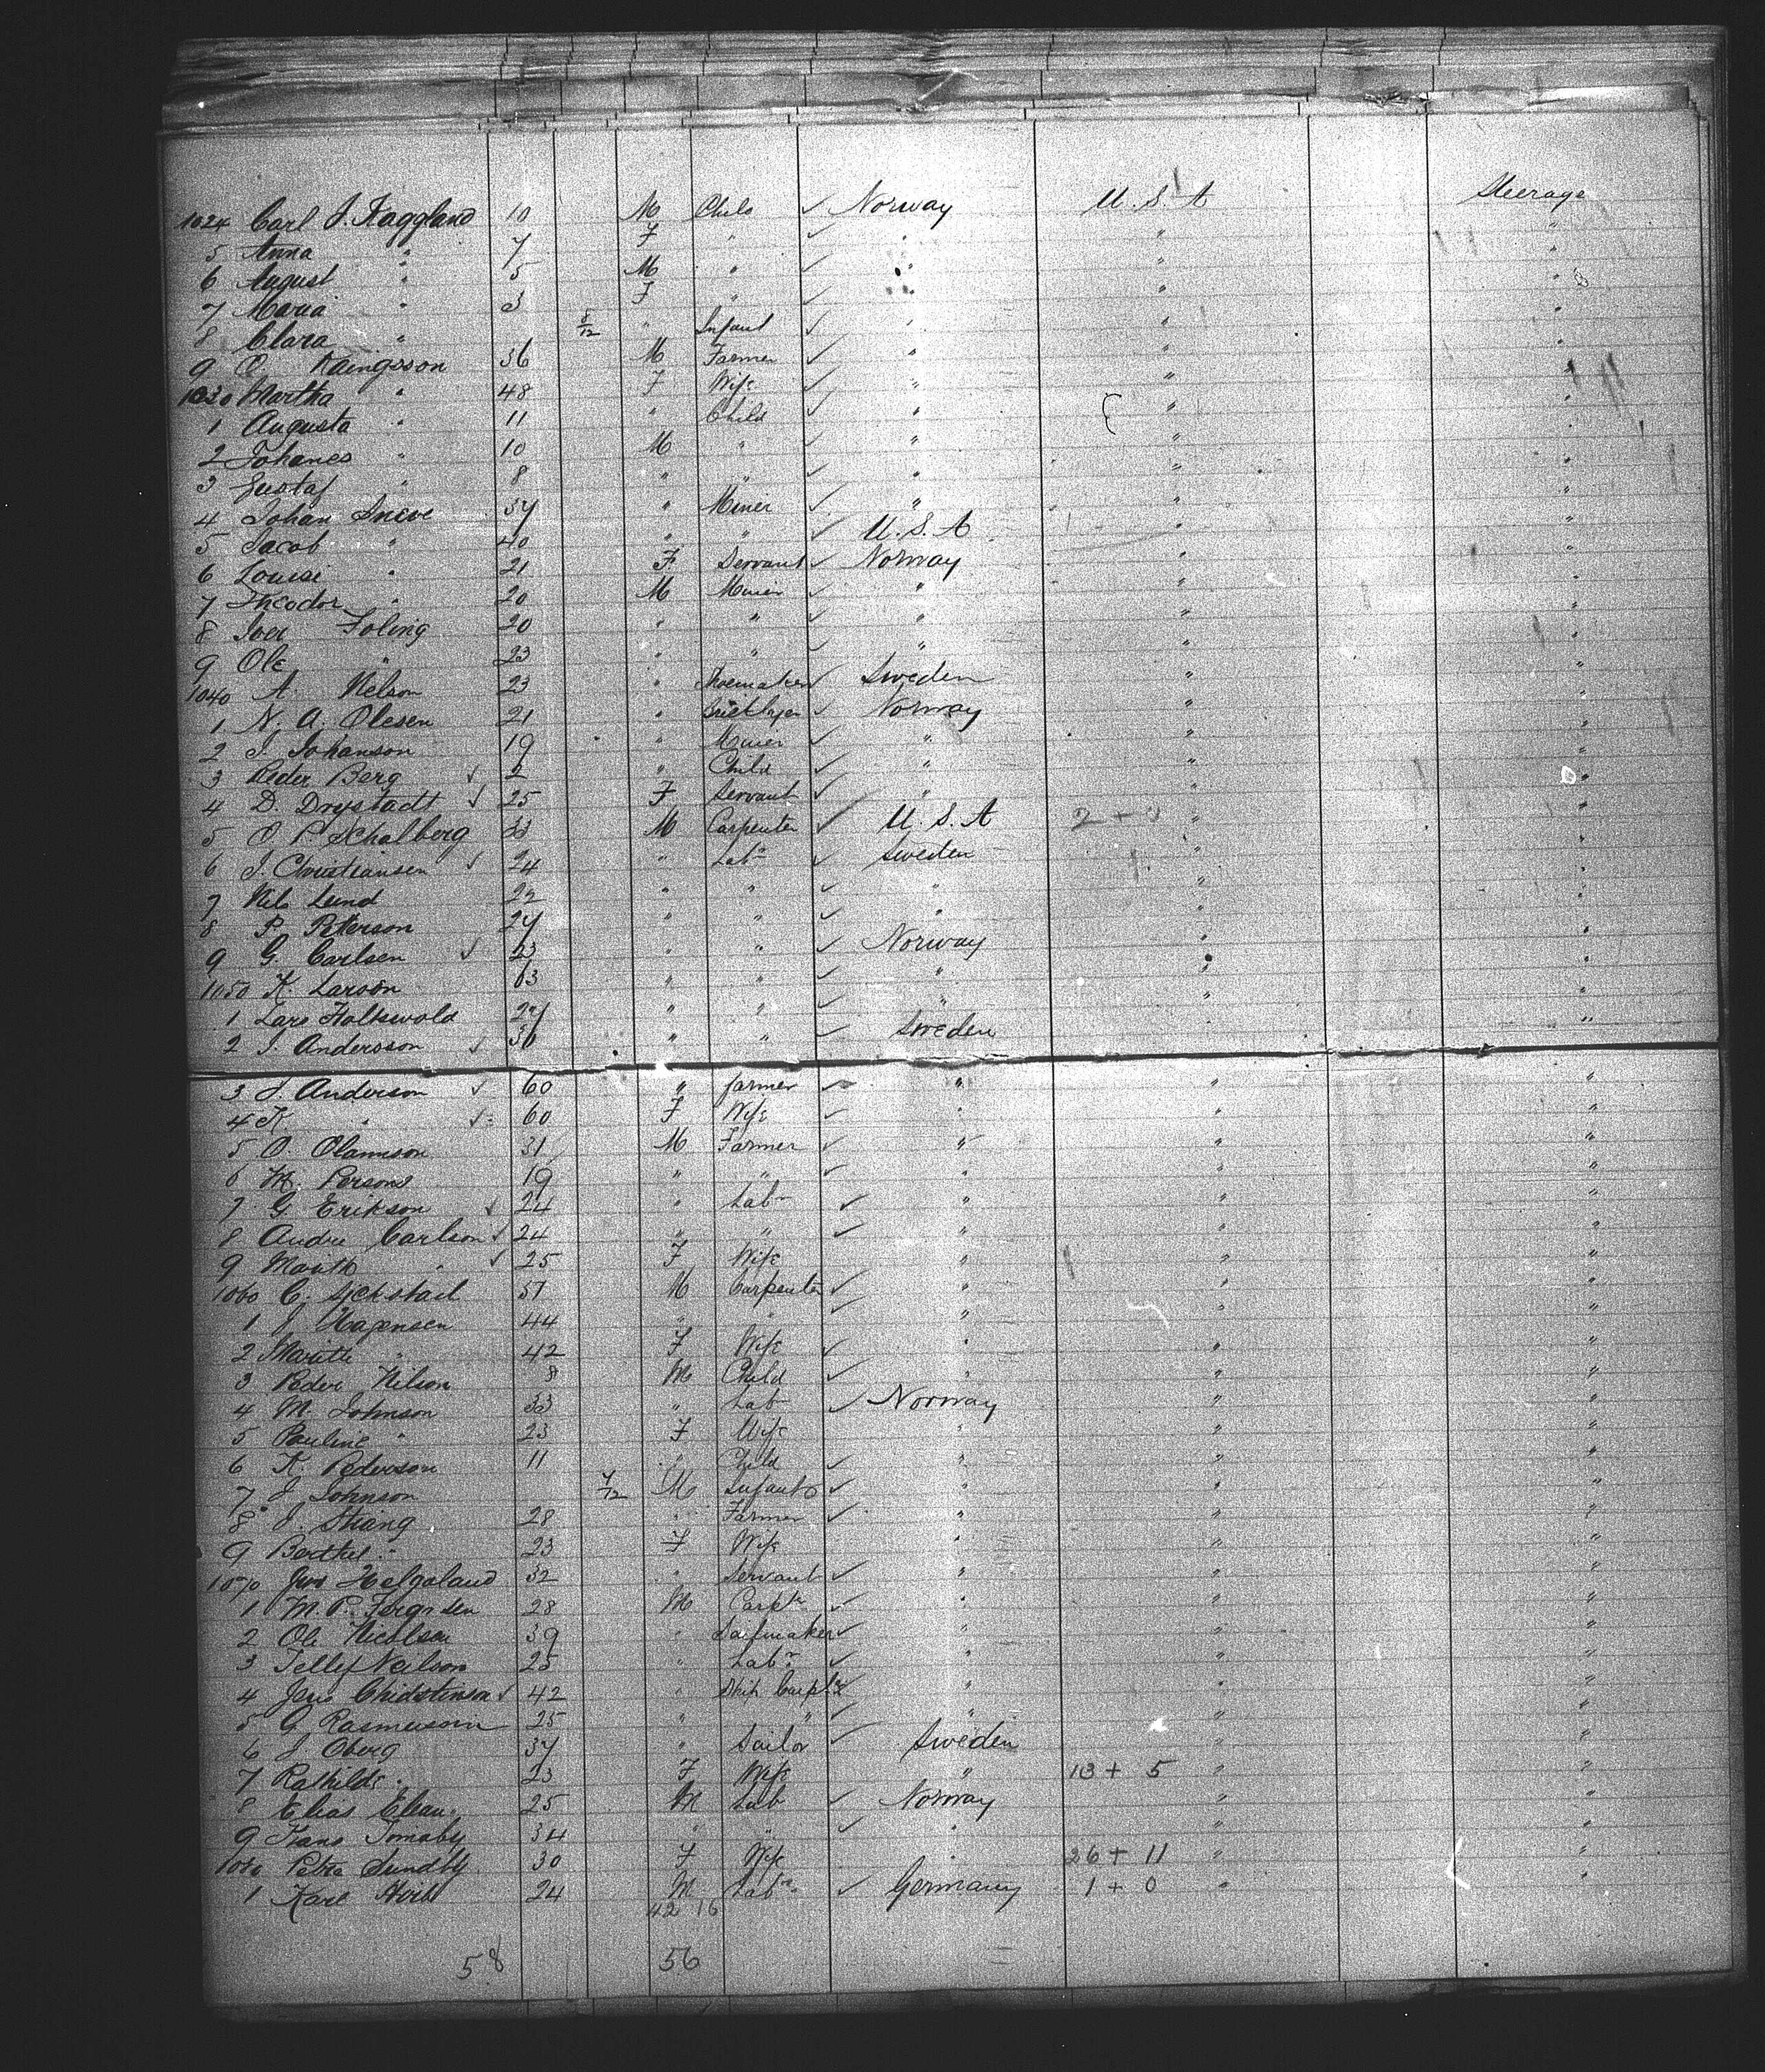 1024 Carl J. Haggland 10 M Child ✓ Norway U.S.A Steerage
5 Anna " 7 F " ✓ " " "
6 August " 5 M " ✓ " " "
7 Maria " 3 F " ✓ " " "
8 Clara " 5/12 " Infant ✓ " " "
9 O. Haingsson 36 M Farmer ✓ " " "
1030 Martha " 48 F Wife ✓ " " "
1 Augusta " 11 " Child ✓ " " "
2 Johanes " 10 M " ✓ " " "
3 Gustaf " 8 " " ✓ " " "
4 Johan Sneve 37 " Miner ✓ " " "
5 Jacob " 40 " " ✓ U.S.A " "
6 Louisi " 21 F Servant ✓ Norway " "
7 Theodor " 20 M Miner ✓ " " "
8 Iver Foling 20 " " ✓ " " "
9 Ole " 23 " " ✓ " " "
1040 A. Nelson 23 " Shoemaker ✓ Sweden " "
1 N. A. Olesen 21 " Bricklayer ✓ Norway " "
2 J. Johanson 19 " Miner ✓ " " "
3 Peder Berg ✓ 2 " Child ✓ " " "
4 D. Drystadt ✓ 25 F Servant ✓ " " "
5 O. P. Schalberg 33 M Carpenter ✓ U.S.A 2 + 0 " "
6 J. Christiansen ✓ 24 " Labr ✓ Sweden " "
7 Nils Lund 22 " " ✓ " " "
8 P. Peterson 27 " " ✓ " " "
9 G. Carlsen ✓ 23 " " ✓ Norway " "
1050 K. Larson 63 " " ✓ " " "
1 Lars Halkwold 27 " " ✓ " " "
2 J. Andersson ✓ 36 " " ✓ Sweden "
3 J. Anderson ✓ 60 " farmer ✓ " " "
4 K " ✓ 60 F Wife ✓ " " "
5 O. Olamson 31 M Farmer ✓ " " "
6 M. Persons 19 " " ✓ " " "
7 G. Erikson ✓ 24 " Labr ✓ " " "
8 Andre Carlson ✓ 24 " " ✓ " " "
9 " ✓ 25 F Wife " " "
1060 C. 57 M Carpenter ✓ " " "
1 J. Hagensen 44 " " ✓ " " "
2 Marithe " 42 F Wife ✓ " " "
3 Peder Nilson 8 M Child ✓ " " "
4 M. Johnson 33 " Labr ✓ Norway " "
5 Pauline " 23 F Wife " " "
6 K. Pederson 11 " Child ✓ " " "
7 J. Johnson 7/12 M Infant ✓ " " "
8 J. Stiang 28 " Farmer ✓ " " "
9 Berthel " 23 F Wife " " "
1070 Helgoland 32 " Servant ✓ " " "
1 M. P. Jorgnsen 28 M Carptr ✓ " " "
2 Ole Nicolsen 39 " Sailmaker ✓ " " "
3 Tellef Neilson 25 " Labr ✓ " " "
4 Jens Chidstinson ✓ 42 " Ship Carptr ✓ " " "
5 G. Rasmussen 25 " " ✓ " " "
6 J. Oberg 37 " Sailor ✓ Sweden " "
7 Rathilde " 23 F Wife " 13 + 5 " "
8 Elias 25 M Lab ✓ Norway " "
9 Hans Tomaby 34 " " ✓ " " "
1080 Petra Sundby 30 F Wife " 26 + 11 " "
1 Karl 24 M Labr ✓ Germany 1 + 0 " "
42 16
58 56